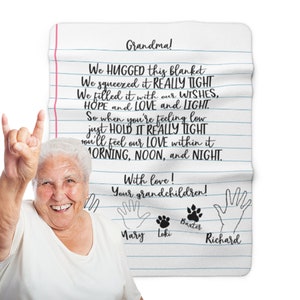 Grandma!
We HUGGED this blanket
We squeezed it REALLY TIGHT
We filled it with our WISHES,
HOPE and LOVE and LIGHT.
So when you're feeling low
just HOLD IT REALLY TIGHT
you'll feel our LOVE within it
MORNING, NOON, and NIGHT.
With love!
Your grandchildren!
Mary
Loki
Baxter
Richard